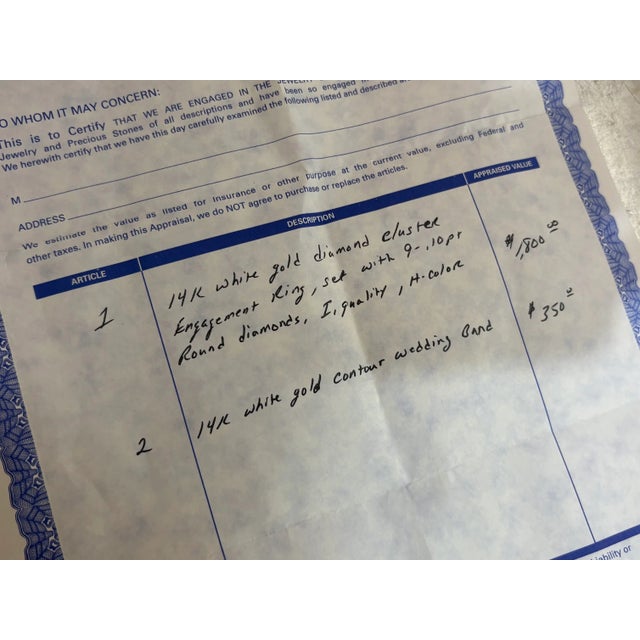 O WHOM IT MAY CONCERN:
This is to Certify THAT WE ARE ENGAGED IN THE JEWELRY
Jewelry and Precious Stones of all descriptions and have been so engaged
We herewith certify that we have this day carefully examined the following listed and described
M
ADDRESS
We estimate the value as listed for insurance or other purpose at the current value, excluding Federal and
other taxes. In making this Appraisal, we do NOT agree to purchase or replace the articles.
ARTICLE DESCRIPTION APPRAISED VALUE
1 14K white gold diamond cluster $1,800.00
Engagement Ring, set with 9-.10pt
Round diamonds, I, quality, H-color
2 14K white gold contour wedding Band $350
iability or